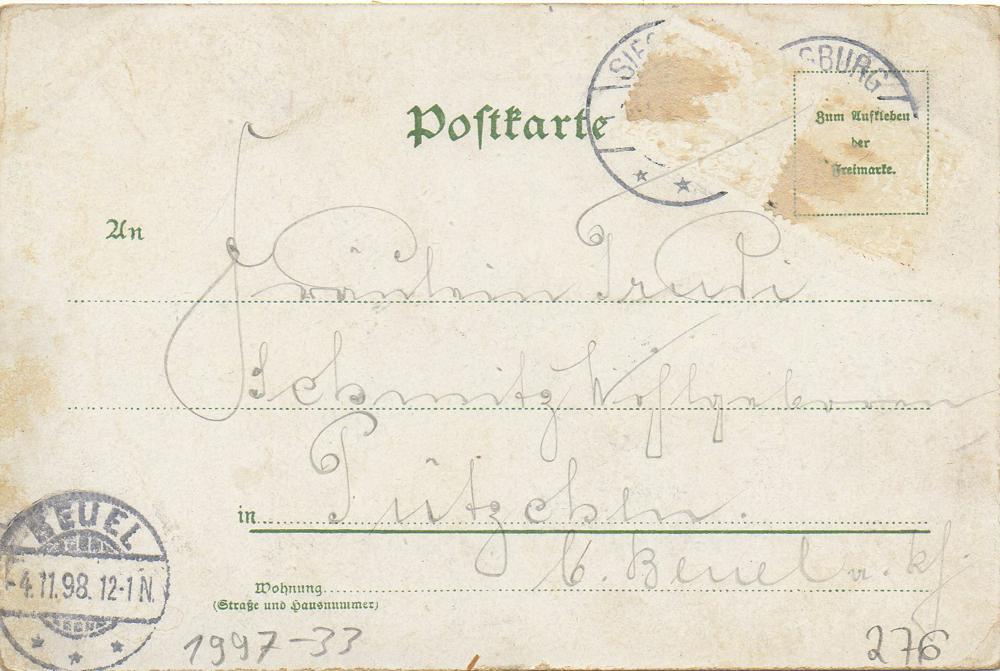 Postkarte
SIEGBURG
Zum Aufkleben
der
Freimarke.
An
Fräulein Trudi
Schmitz Wohlgeboren
in Pützchen.
b. Beuel a. Rh.
Wohnung
(Straße und Hausnummer)
BEUEL
4.11.98. 12-1 N.
1997-33
276